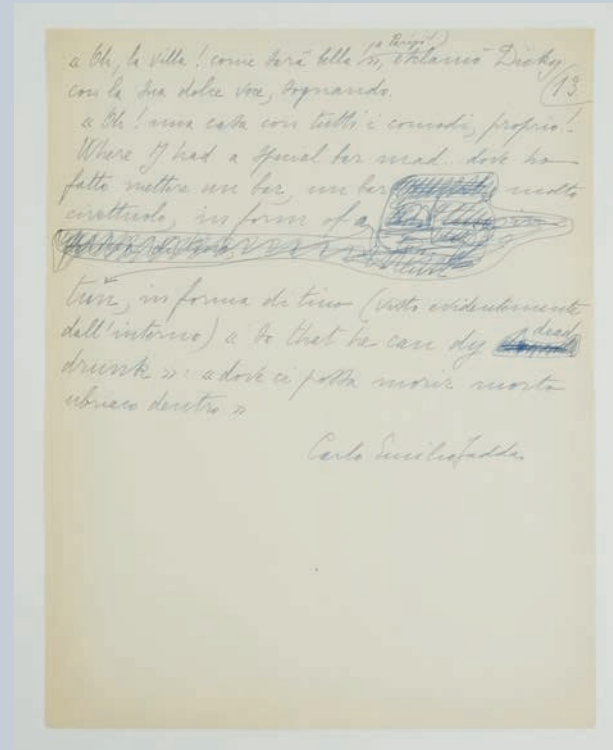 « Oh, la villa! come sarà bella a Parigi! », esclamò Dicky
con la sua dolce voce, sognando.
13
« Oh! una casa con tutti i comodi, proprio!
Where I had a special bar mad. dove ho
fatto mettere un bar, un bar molto
civettuolo, in form of a
tun, in forma di tino (visto evidentemente
dall'interno) « so that he can dy dead
drunk »: « dove ci possa morir morto
ubriaco dentro »
Carlo Emilio Gadda